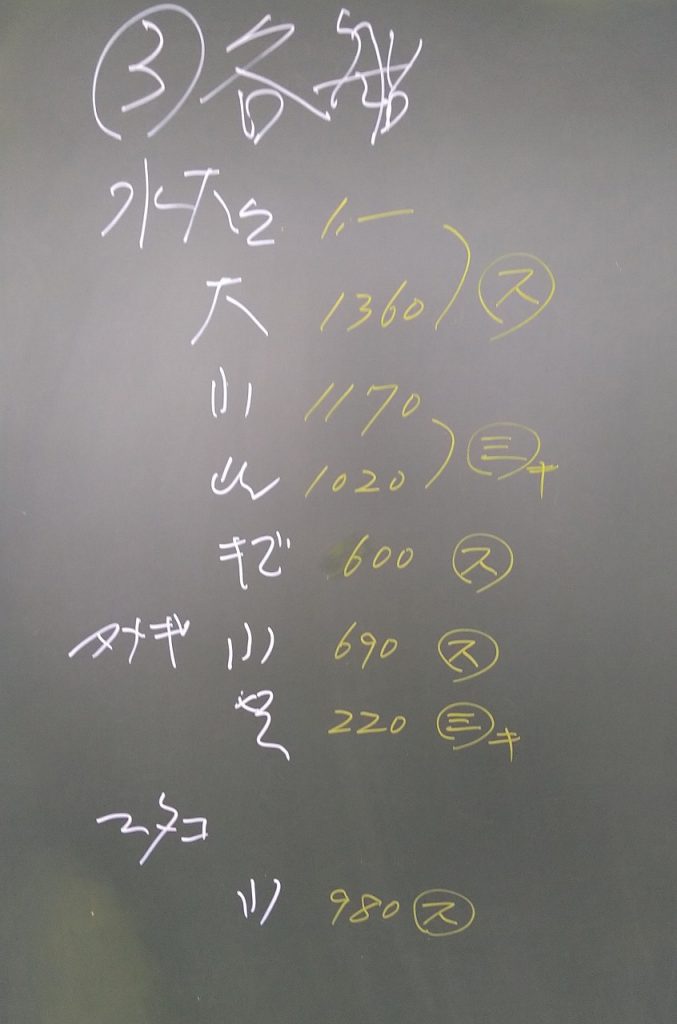 ③各船
水大 1.一
大 1360 ㋜
小 1170
1020 ㊂キ
キズ 600 ㋜
タナギ 小 690 ㋜
220 ㊂キ
マダコ
小 980 ㋜